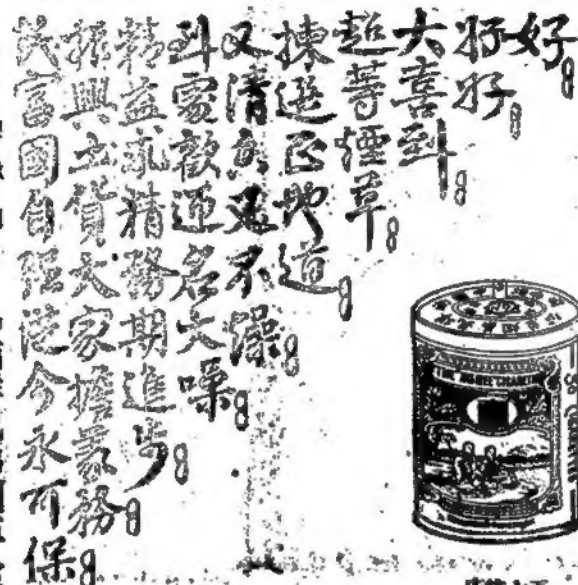 好。
好好。
大喜到。
超等煙草。
揀選正地道。
又清香又不燥。
到處歡迎名大噪。
精益求精務期進步。
振興土貨大家擔義務。
民富國自強從今永可保。